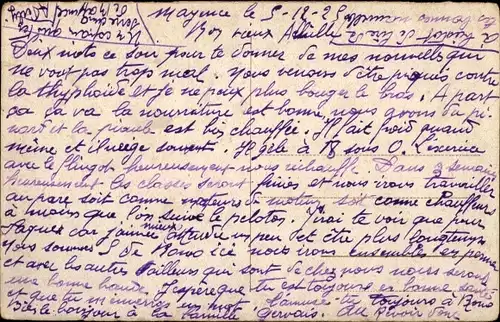 Mayence le 5-12-25
Mon vieux Achille
Deux mots ce soir pour te donner de mes nouvelles qui
ne vont pas trop mal. Nous venons d'être piqués contre
la thyphoïde et je ne peux plus bouger le bras. A part
ça ça va la nourriture est bonne nous avons du pi-
nard et la piaule est bien chauffée. Il fait froid quand
même et il neige souvent. Il gèle à 18 sous 0. L'exercice
avec le flingot heureusement nous réchauffe. Dans 3 semaines
heureusement les classes seront finies et nous irons travailler
au parc soit comme de moteur soit comme chauffeur
à moins que l'on suive le peloton. J'irai te voir que pour
Pâques car janvier un peu et être plus longtemps
Nous sommes 5 de ici nous irons ensemble en perme
et avec les autres d'ailleurs qui sont de chez nous nous serons
une bonne bande. J'espère que tu es toujours en bonne santé
et que tu m'enverras un mot. t'amuses-tu toujours à
Bien le bonjour à la famille Gervais. Au revoir